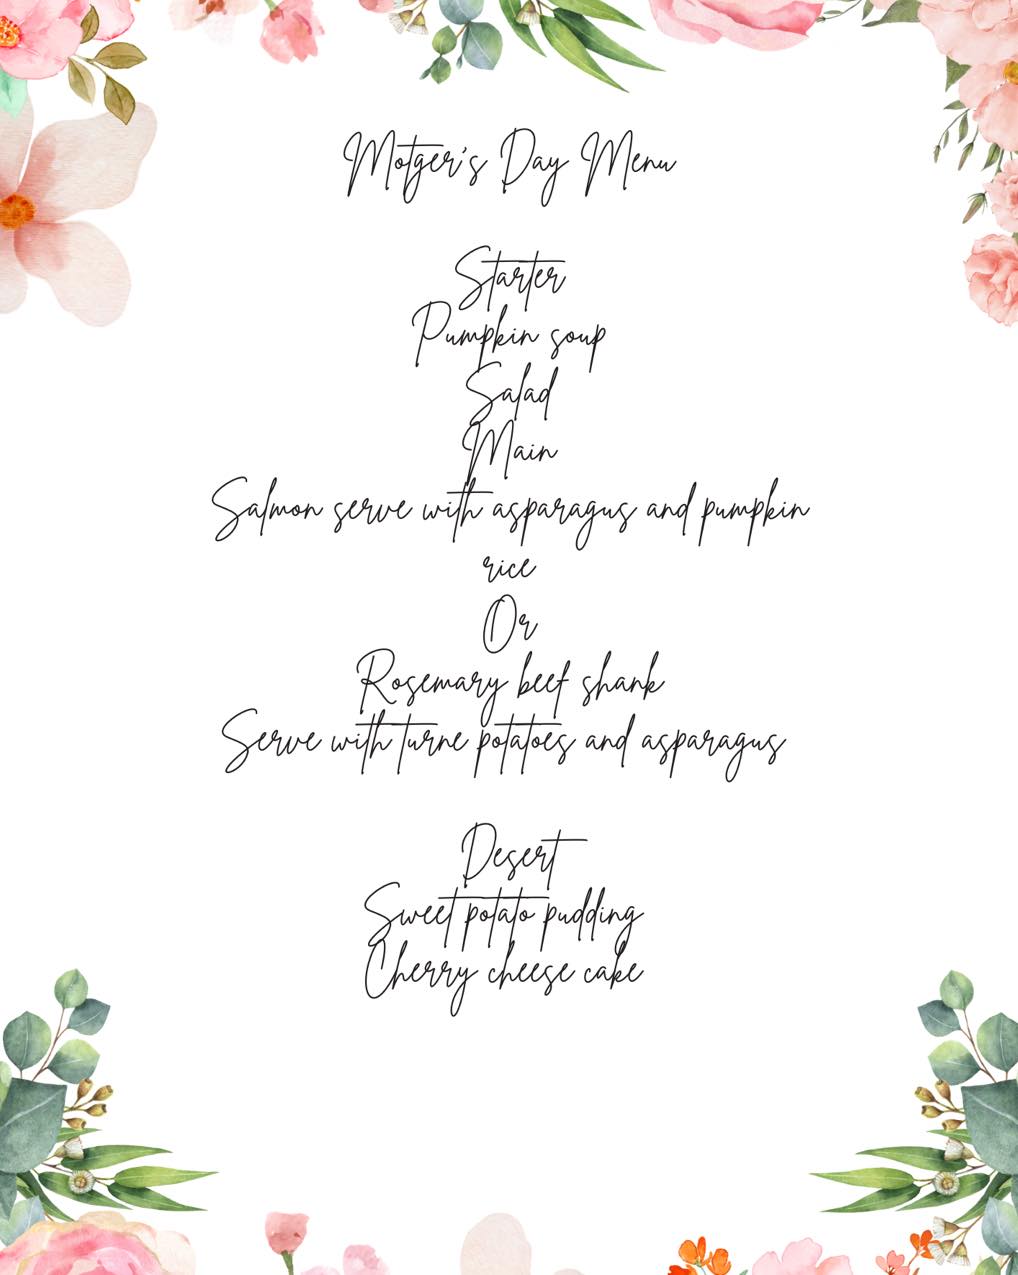 Motger's Day Menu
Starter
Pumpkin soup
Salad
Main
Salmon serve with asparagus and pumpkin
rice
Or
Rosemary beef shank
Serve with turne potatoes and asparagus
Desert
Sweet potato pudding
Cherry cheese cake